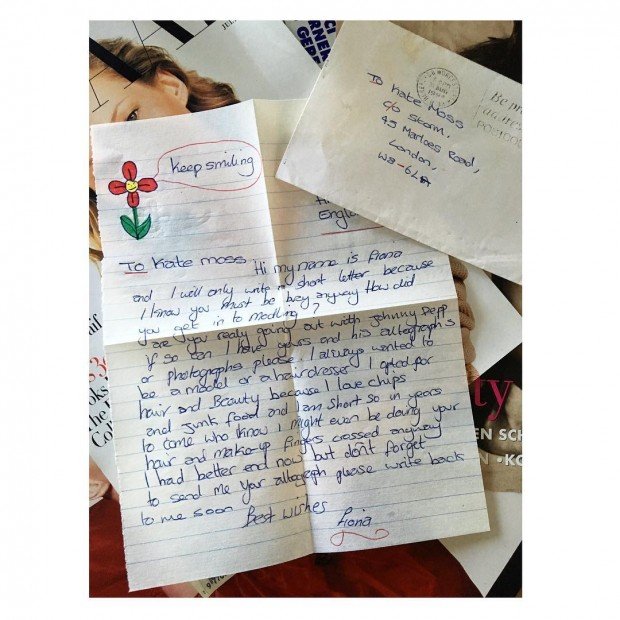 JUL
keep smiling
To Kate Moss
C/o Storm,
45 Marloes Road,
London,
W8-6LA
Be pr
POSTCOD
Engl
To Kate moss Hi my name is Fiona
and I will only write a short letter because
I know you must be busy anyway How did
you get in to modling?
are you really going out with Johnny Depp
if so can I have yours and his altograph's
or photographs please. I always wanted to
be a model or a hairdresser I opted for
hair and Beauty because I love chips
and junk food and I am short so in years
to come who know I might even be doing your
hair and make-up fingers crossed anyway
I had better end now but don't forget
to send me your altograph please write back
to me soon Best wishes
Fiona
ty
EN SCH
N · KO